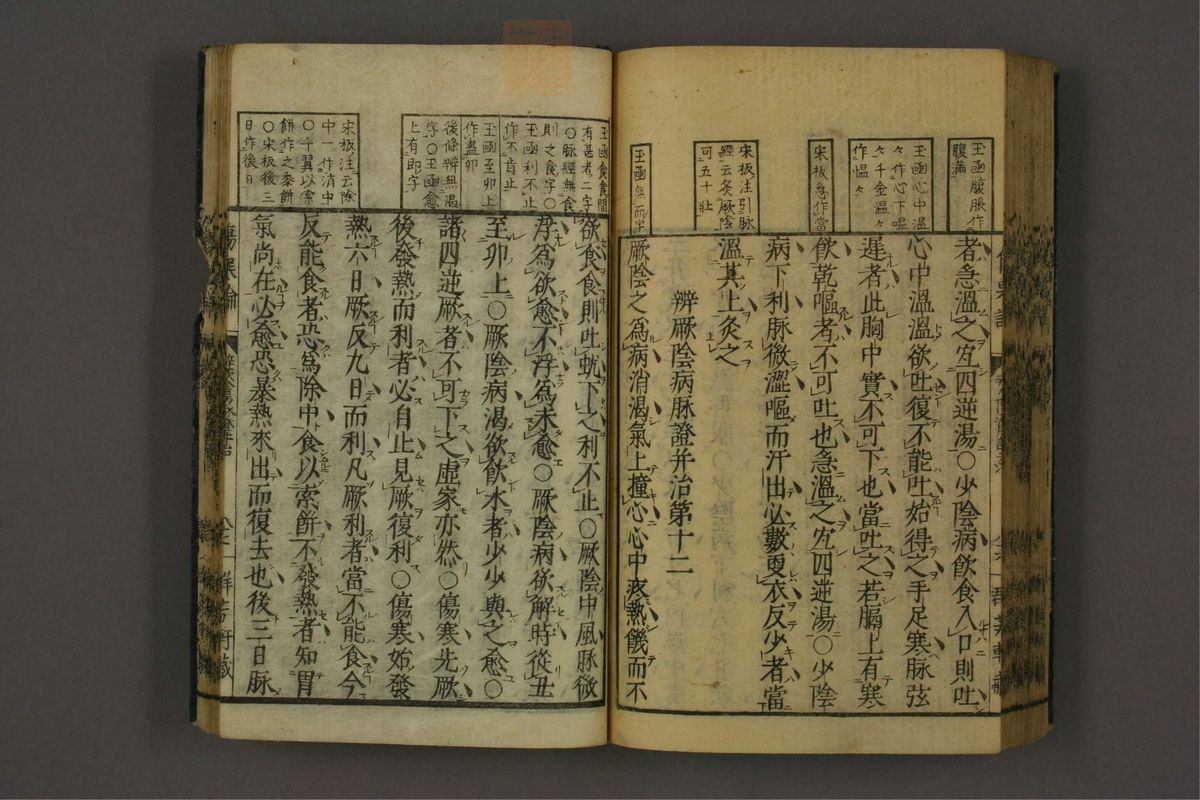 玉函腹脹作
腹滿
玉函心中溫
々作心下嗢
々千金溫々
作愠々
宋板急作當
宋板注引脉
經云灸厥陰
可五十壯
玉函無而字
者急溫之宜四逆湯○少陰病飲食入口則吐
心中溫溫欲吐復不能吐始得之手足寒脉弦
遲者此胸中實不可下也當吐之若膈上有寒
飲乾嘔者不可吐也急溫之宜四逆湯○少陰
病下利脉微澀嘔而汗出必數更衣反少者當
溫其上灸之
辨厥陰病脉證并治第十二
厥陰之為病消渴氣上撞心心中疼熱饑而不
玉函食食間
有甚者二字
○脉經無食
則之食字○
玉函利不止
作不肯止
玉函至卯上
作盡卯
後條辨無渴
字○玉函愈
上有即字
宋板注云除
中一作消中
○千翼以索
餅作之黍餅
○宋板後三
日作後日
欲食食則吐蚘下之利不止○厥陰中風脉微
浮為欲愈不浮為未愈○厥陰病欲解時從丑
至卯上○厥陰病渴欲飲水者少少與之愈○
諸四逆厥者不可下之虛家亦然○傷寒先厥
後發熱而利者必自止見厥復利○傷寒始發
熱六日厥反九日而利凡厥利者當不能食今
反能食者恐為除中食以索餅不發熱者知胃
氣尚在必愈恐暴熱來出而復去也後三日脉